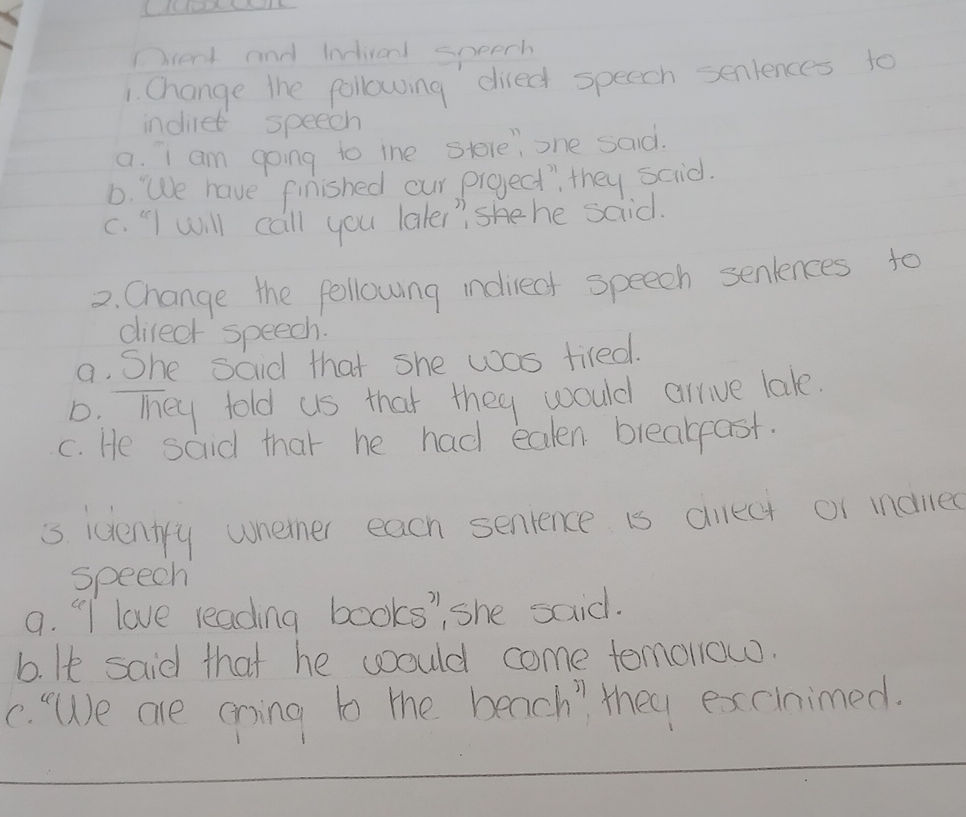 Direct and Indirect speech
1. Change the following direct speech sentences to
indiret speech
a. "I am going to the store", she said.
b. "We have finished our project", they said.
c. "I will call you later", she he said.
2. Change the following indirect speech sentences to
direct speech.
a. She said that she was tired.
b. They told us that they would arrive late.
c. He said that he had eaten breakfast.
3. identify whether each sentence is direct or indirec
speech
a. "I love reading books", she said.
b. It said that he would come tomorrow.
c. "We are going to the beach", they exclaimed.